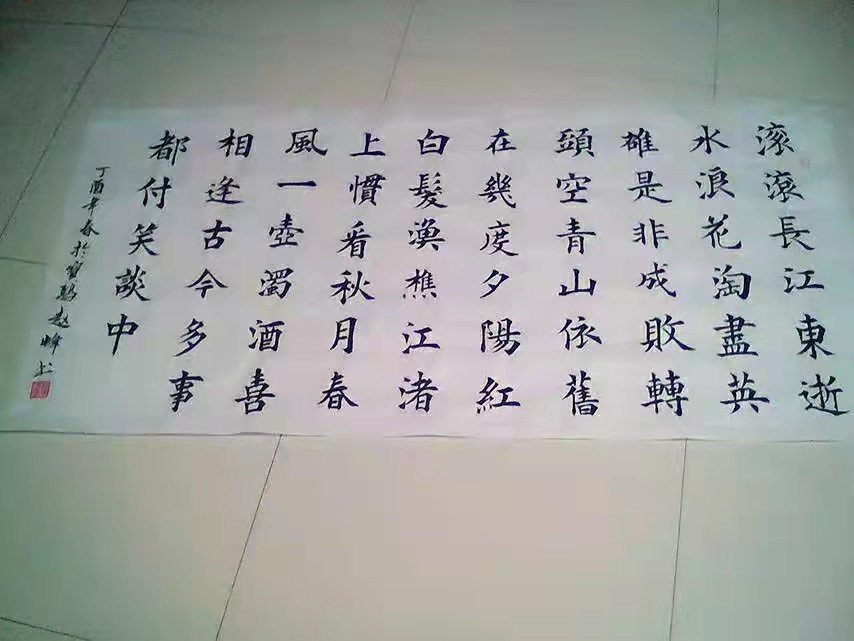 滾滾長江東逝
水浪花淘盡英
雄是非成敗轉
頭空青山依舊
在幾度夕陽紅
白髮漁樵江渚
上慣看秋月春
風一壺濁酒喜
相逢古今多事
都付笑談中
丁酉年春於寶